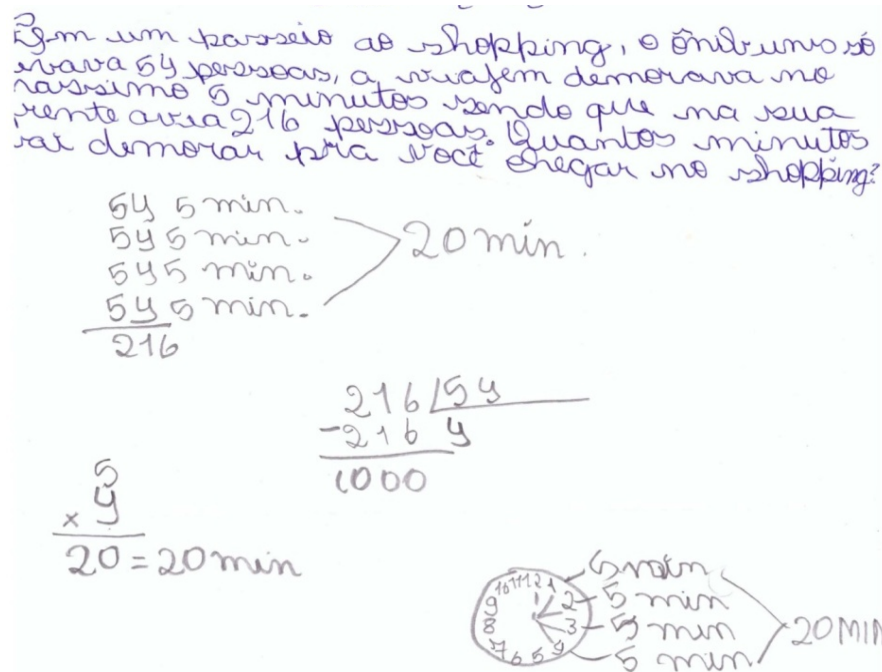 Em um passeio ao shopping, o ônibuno só
evava 54 pessoas, a viajem demorava no
nassimo 5 minutos sendo que na sua
rente avia 216 pessoas. Quantos minutos
vai demorar pra você chegar no shopping?
54 5 min.
54 5 min.
54 5 min.
54 5 min.
216
20 min.
216 54
-216 4
(000
5
x 4
20 = 20 min
10 11 12 1
9 2 5 min
8 3 5 min
7 6 5 4
5 min
5 min
20 MIN